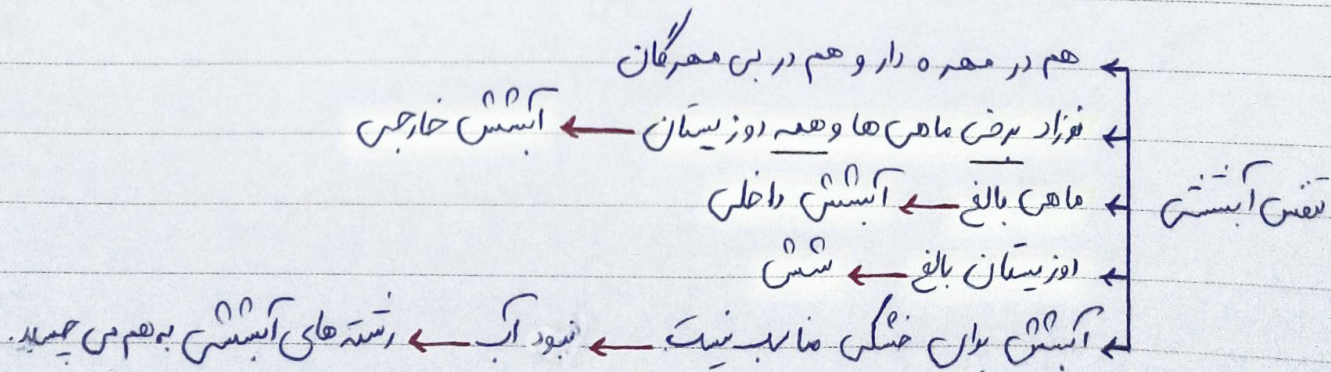 تنفس آبششی
← هم در مهره دار و هم در بی مهرگان
← نوزاد برخی ماهی ها و همه دوزیستان ← آبشش خارجی
← ماهی بالغ ← آبشش داخلی
← دوزیستان بالغ ← شش
← آبشش برای خشکی مناسب نیست ← نبود آب ← رشته های آبششی به هم می چسبد.